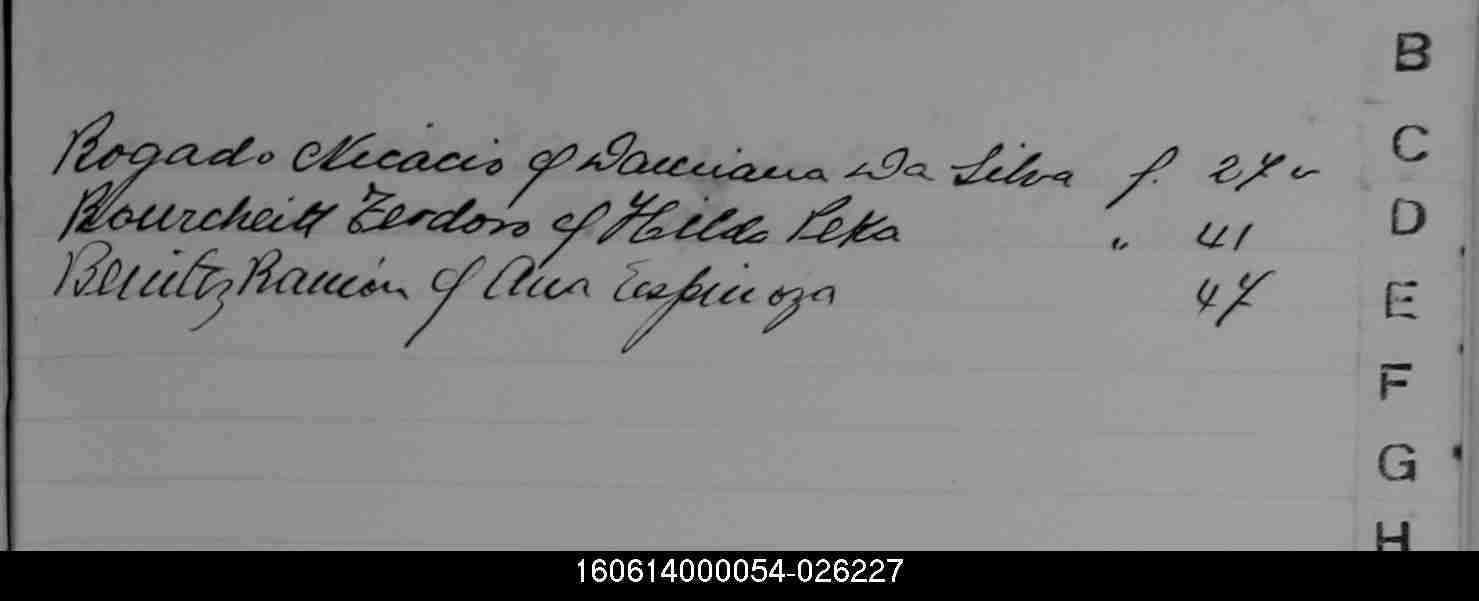 B
C
Bogado Nicacio c/ Damiana Da Silva f. 27 v
D
Bourcheitt Teodoro c/ Hilda Peka " 41
E
Benitez Ramón c/ Ana Espinoza 47
F
G
H
160614000054-026227